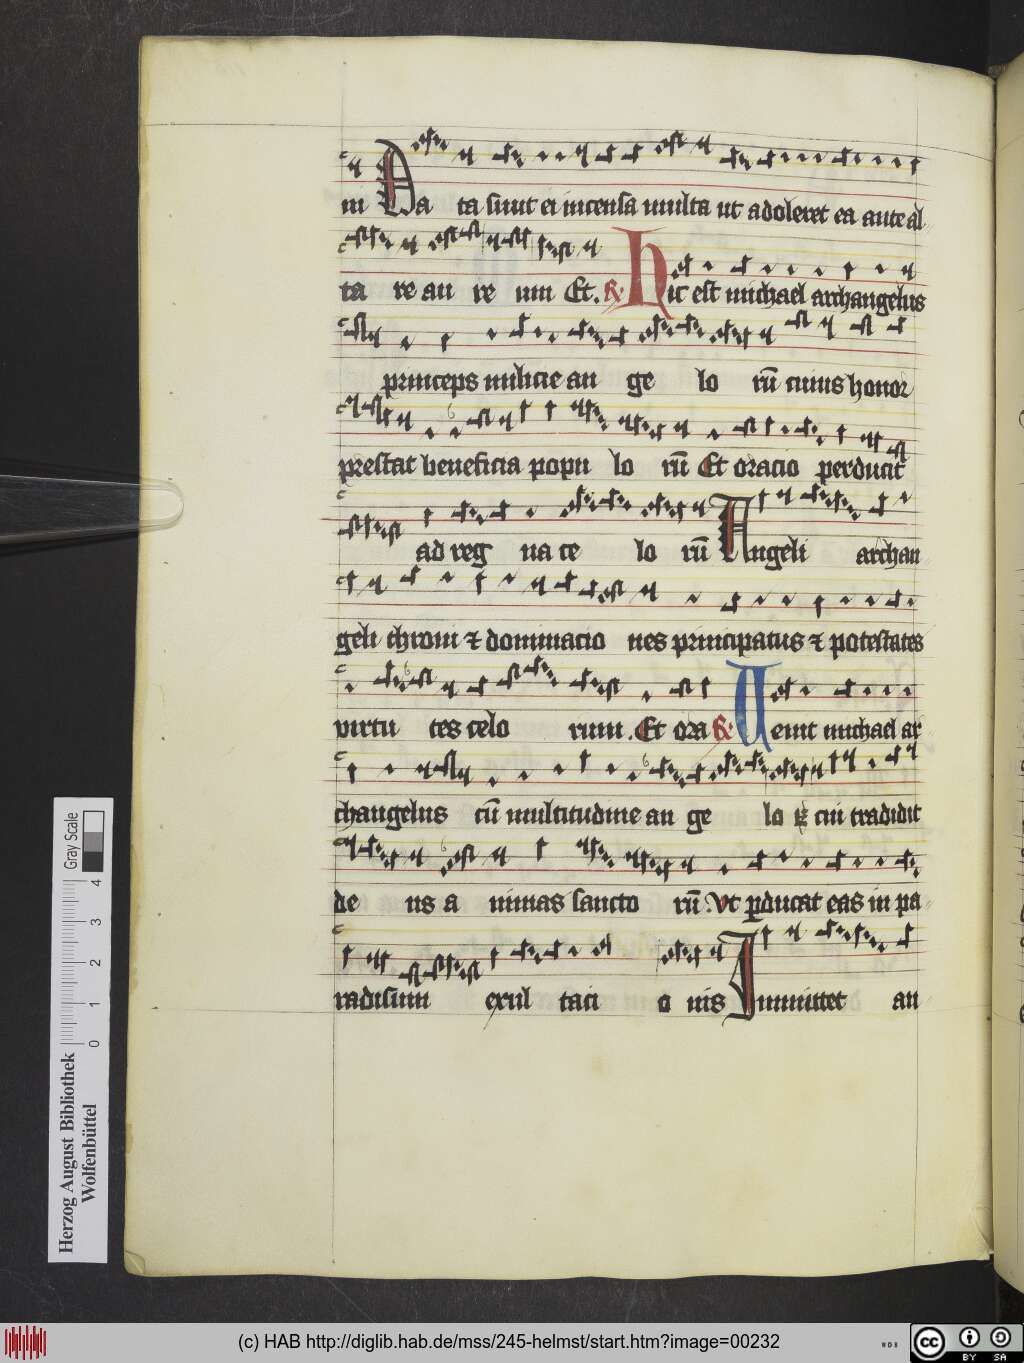 m Data sunt ei incensa multa ut adoleret ea ante al
ta re au re um Et. R. Hic est michael archangelus
princeps milicie an ge lo rū cuius honor
prestat beneficia popu lo rū Et oracio perducit
ad reg na ce lo rū Angeli archan
geli throni ⁊ dominacio nes principatus ⁊ potestates
virtu tes celo rum .Et ora R. Uenit michael ar
changelus cū multitudine an ge lo ꝝ cui tradidit
de us a nimas sancto rū .Vt ꝑducat eas in pa
radisum exul taci o nis Inmittet an
Herzog August Bibliothek
Wolfenbüttel
0 1 2 3 4
Gray Scale
(c) HAB http://diglib.hab.de/mss/245-helmst/start.htm?image=00232
WDB
cc BY SA